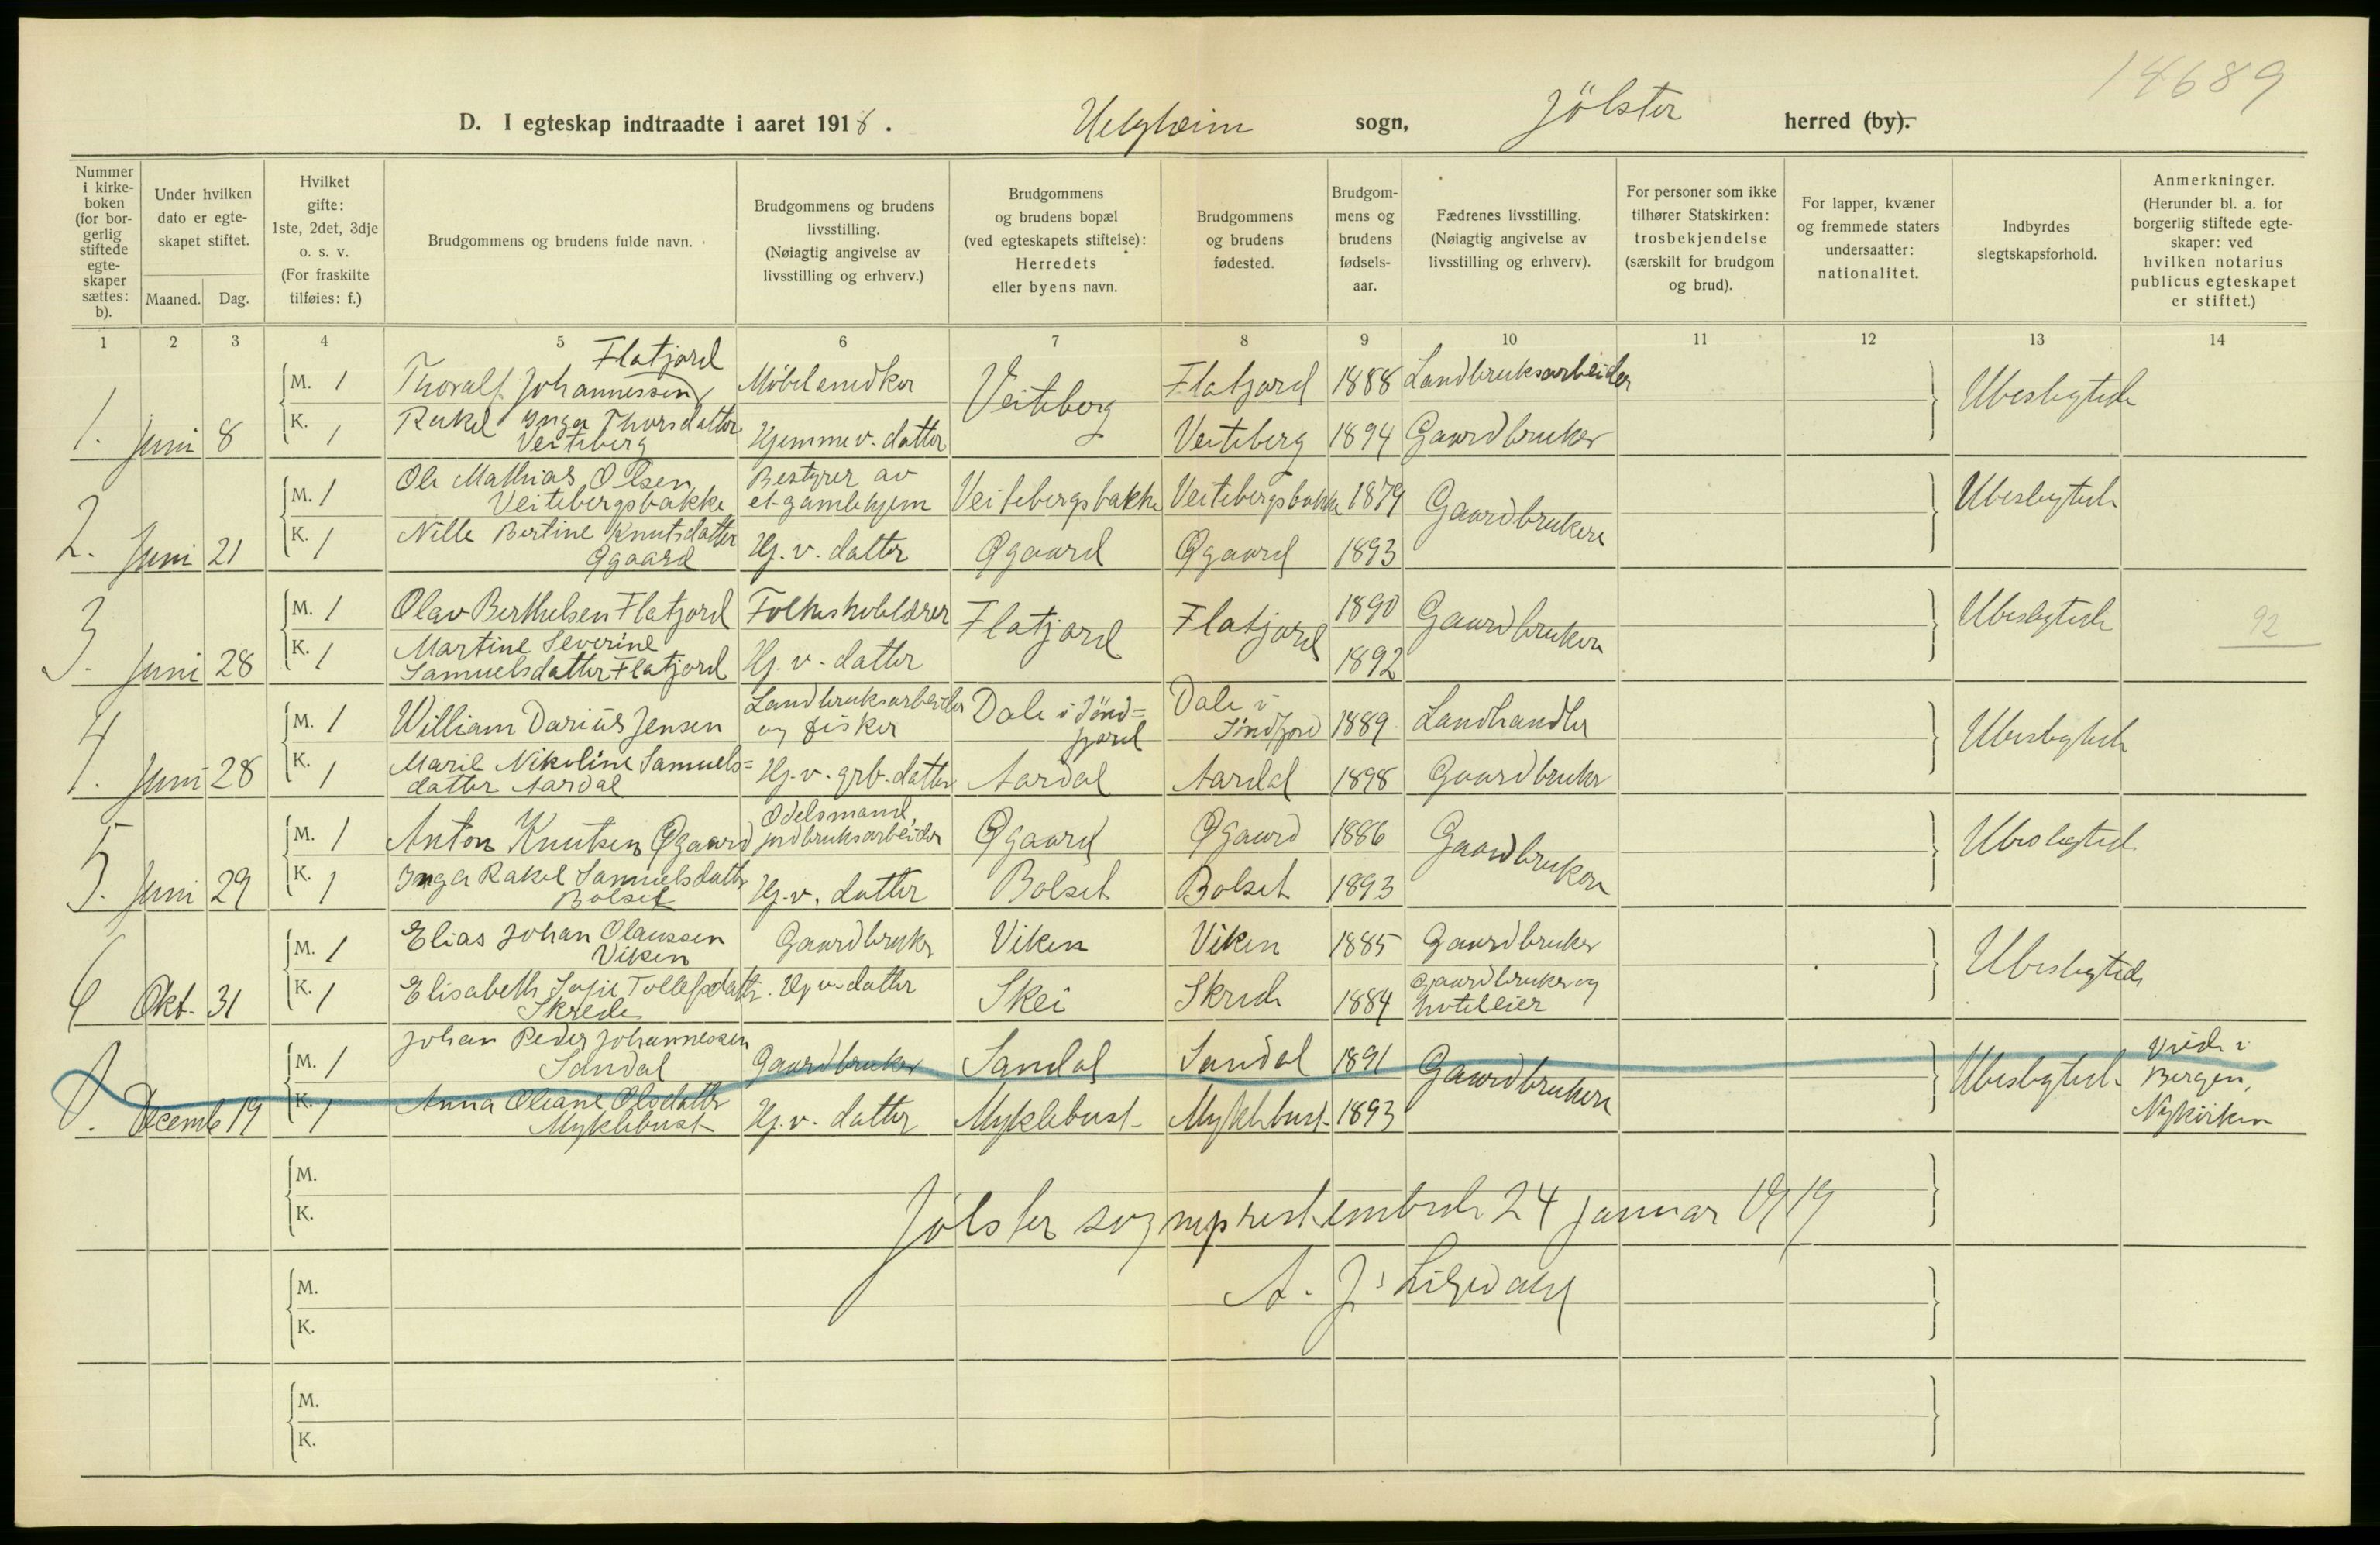 14689
D. I egteskap indtraadte i aaret 1918. Helgheim sogn, Jölster herred (by).
Nummer i kirke-boken (for bor-gerlig stiftede egte-skaper sættes: b).
Under hvilken dato er egte-skapet stiftet.
Maaned. Dag.
Hvilket gifte: 1ste, 2det, 3dje o. s. v. (For fraskilte tilføies: f.)
Brudgommens og brudens fulde navn.
Brudgommens og brudens livsstilling. (Nøiagtig angivelse av livsstilling og erhverv.)
Brudgommens og brudens bopæl (ved egteskapets stiftelse): Herredets eller byens navn.
Brudgommens og brudens fødested.
Brudgom-mens og brudens fødsels-aar.
Fædrenes livsstilling. (Nøiagtig angivelse av livsstilling og erhverv).
For personer som ikke tilhører Statskirken: trosbekjendelse (særskilt for brudgom og brud).
For lapper, kvæner og fremmede staters undersaatter: nationalitet.
Indbyrdes slegtskapsforhold.
Anmerkninger. (Herunder bl. a. for borgerlig stiftede egte-skaper: ved hvilken notarius publicus egteskapet er stiftet.)
1 2 3 4 5 6 7 8 9 10 11 12 13 14
M. 1 Thoralf Johannessen Flatjord Möbelsnedker Veiteberg Flatjord 1888 Landbruksarbeider Ubeslegtede
1. Juni 8 K. 1 Rakel Inga Thorsdatter Veiteberg Hjemmev. datter Veiteberg 1894 Gaardbruker
M. 1 Ole Mathias Olsen Veitebergsbakke Bestyrer av et gamlehjem Veitebergsbakke Veitebergsbakke 1879 Gaardbrukere Ubeslegtede
2. Juni 21 K. 1 Nille Bertine Knutsdatter Øgaard Hj. v. datter Øgaard Øgaard 1893
M. 1 Olav Berthelsen Flatjord Folkeskolelærer Flatjord Flatjord 1890 Gaardbrukere Ubeslegtede 92
3. Juni 28 K. 1 Martine Severine Samuelsdatter Flatjord Hj. v. datter 1892
M. 1 William Darius Jensen Landbruksarbeider og fisker Dale i Sönd=fjord Dale i Söndfjord 1889 Landhandler Ubeslegtede
4. Juni 28 K. 1 Marie Nikoline Samuels=datter Aardal Hj. v. grb. datter Aardal Aardal 1898 Gaardbruker
M. 1 Anton Knutsen Øgaard Odelsmand, jordbruksarbeider Øgaard Øgaard 1886 Gaardbrukere Ubeslegtede
5. Juni 29 K. 1 Inga Rakel Samuelsdatter Bolset Hj. v. datter Bolset Bolset 1893
M. 1 Elias Johan Olaussen Viken Gaardbruker Viken Viken 1885 Gaardbruker Ubeslegtede
6 Okt. 31 K. 1 Elisabeth Sofie Tollefsdatter Skrede Hj v. datter Skei Skrede 1884 Gaardbruker og hoteleier
M. 1 Johan Peder Johannessen Sandal Gaardbruker Sandal Sandal 1891 Gaardbrukere Ubeslegtede Viede i Bergen, Nykirken
Decemb 19 K. 1 Anna Oliane Olsdatter Myklebust Hj. v. datter Myklebust Myklebust 1893
M.
K.
Jölster sogneprestembede 24 januar 1919
M.
K.
M.
K.